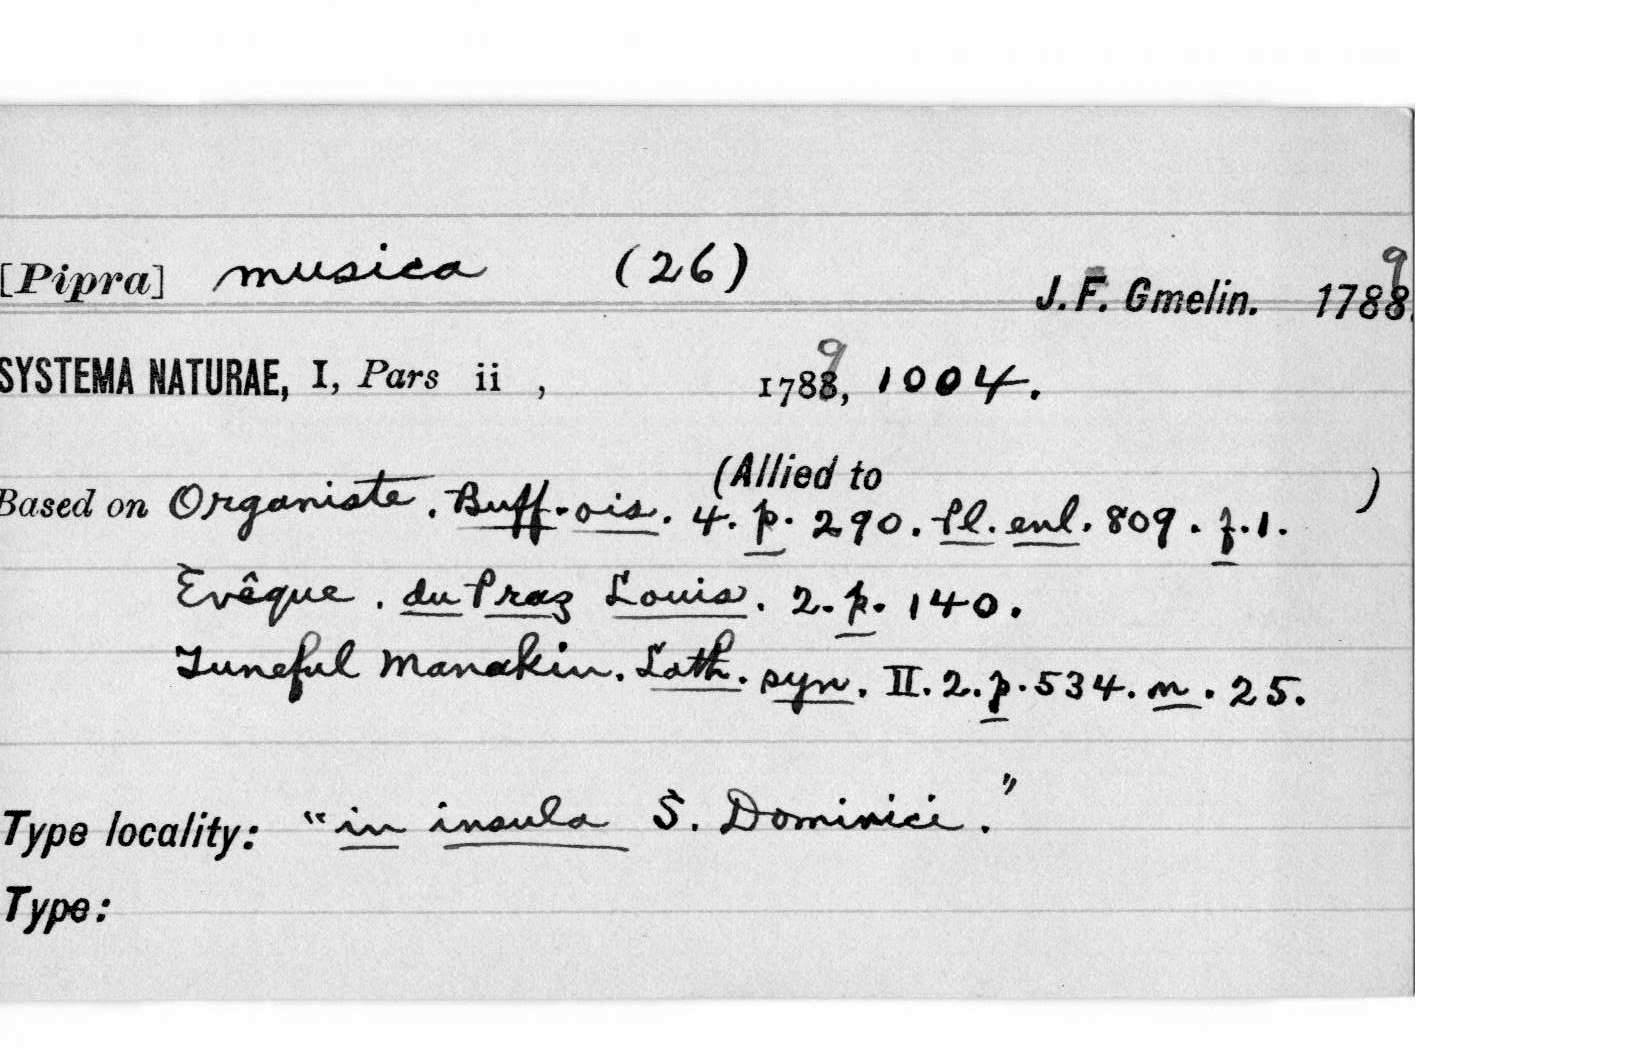 [Pipra] musica (26)
J. F. Gmelin. 1788. 9
SYSTEMA NATURAE, I, Pars ii , 1788, 9 1004.
(Allied to )
Based on Organiste. Buff. ois. 4. p. 290. Pl. enl. 809. f. 1.
Evêque. du Praz Louis. 2. p. 140.
Tuneful Manakin. Lath. syn. II. 2. p. 534. n. 25.
Type locality: "in insula S. Dominici."
Type: